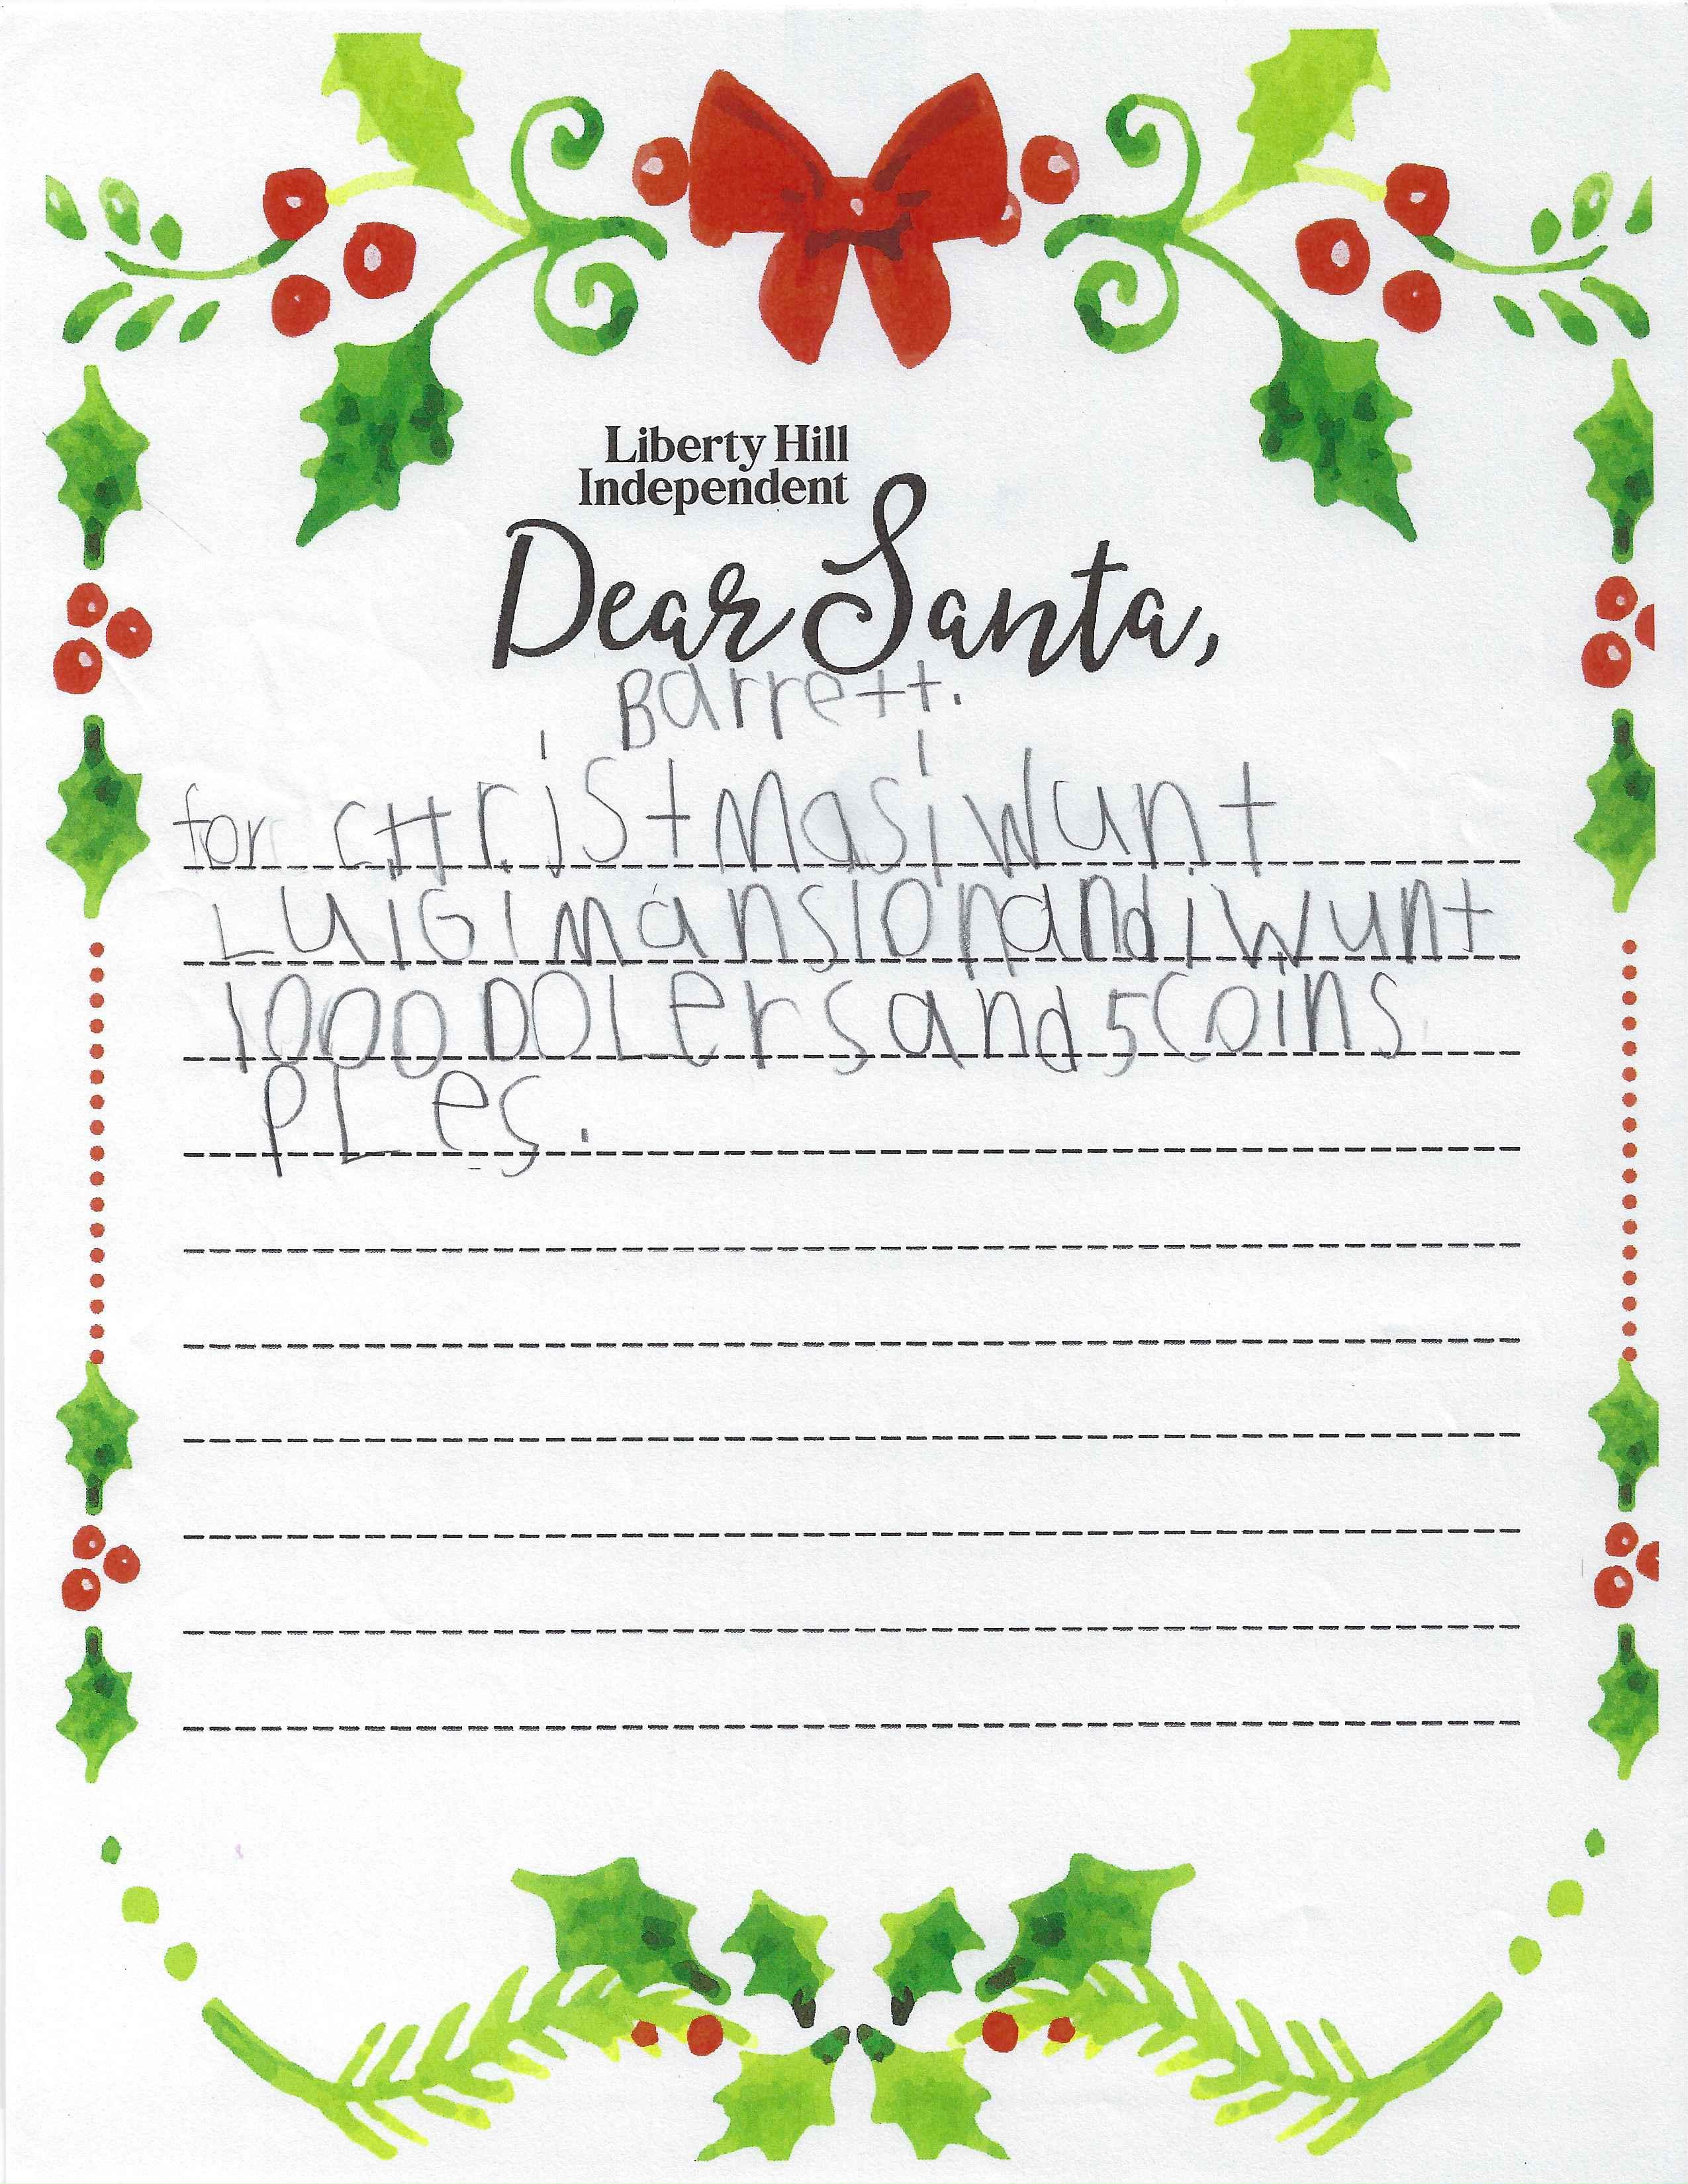 Liberty Hill
Independent
Dear Santa,
Barrett.
for cHristmas i wunt
LUIGI mansion and i wunt
1000 DOLers and 5 Coins
PLes.